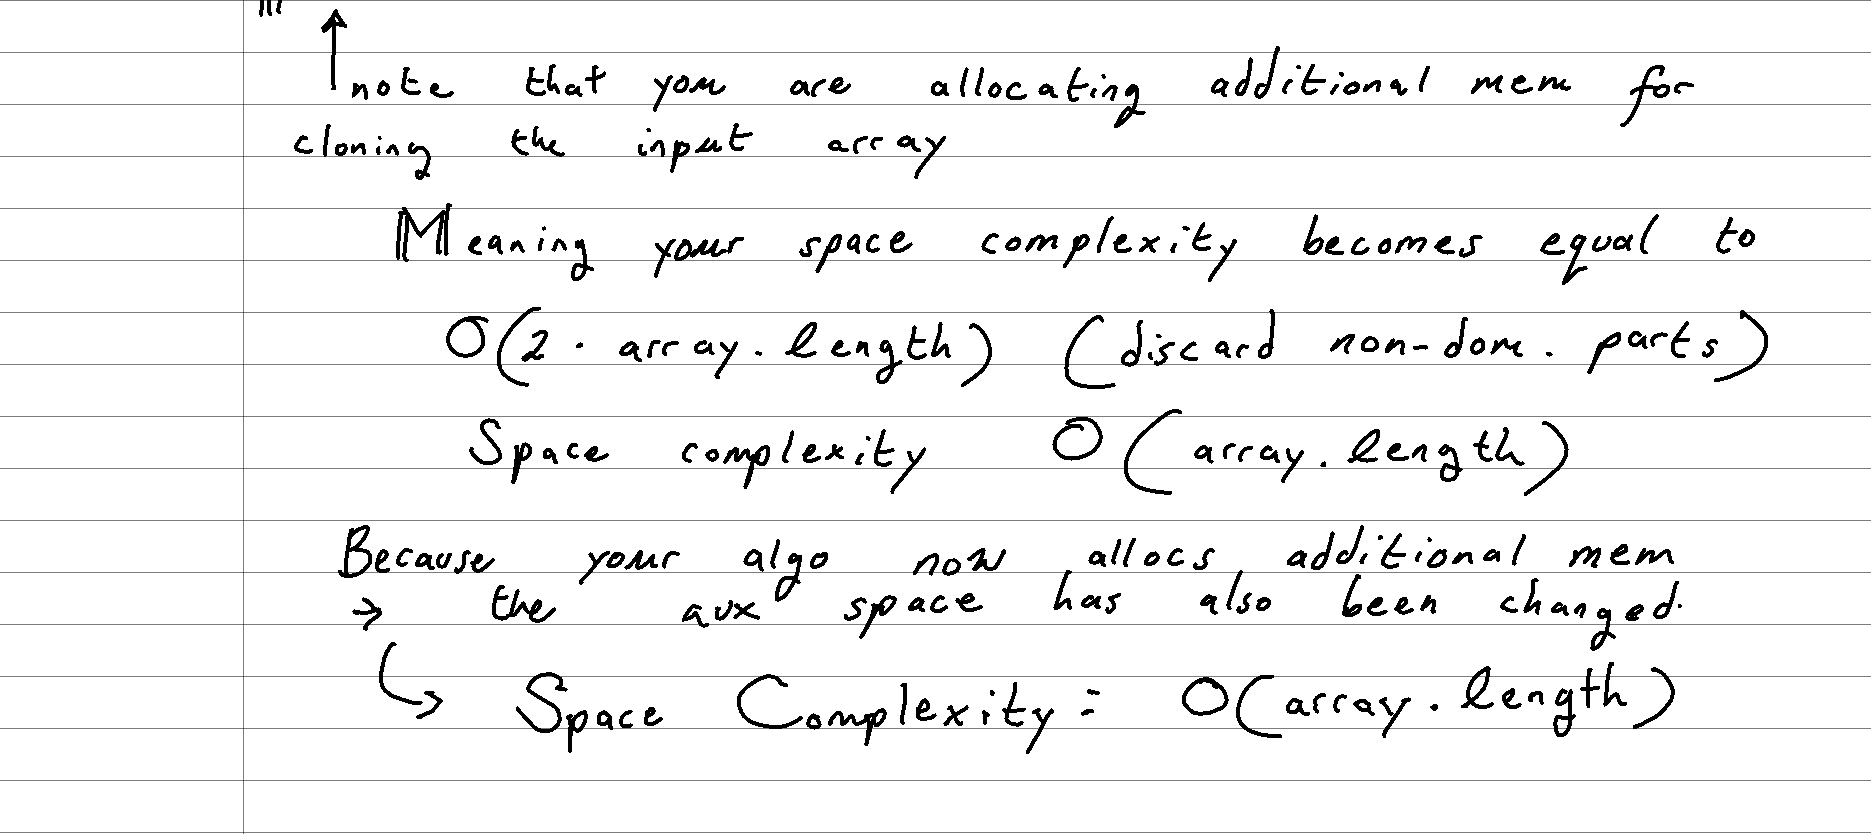 note that you are allocating additional mem for
cloning the input array
Meaning your space complexity becomes equal to
O(2 · array.length) (discard non-dom. parts)
Space complexity O(array.length)
Because your algo now allocs additional mem
→ the aux space has also been changed.
↳ Space Complexity = O(array.length)